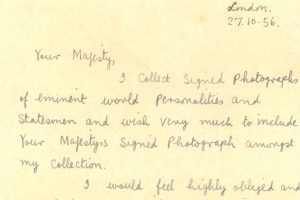 London.
27.10-56.
Your Majesty,
I Collect Signed Photographs
of eminent world Personalities and
Statesmen and wish very much to include
Your Majesty's Signed Photograph amongst
my Collection.
I would feel highly obliged and